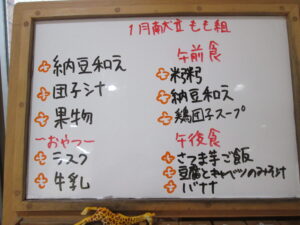 1月献立 もも組
納豆和え
団子汁
果物
〜おやつ〜
ミスク
牛乳
午前食
米粥
納豆和え
鶏団子スープ
午後食
さつま芋ご飯
豆腐とキャベツのみそ汁
バナナ